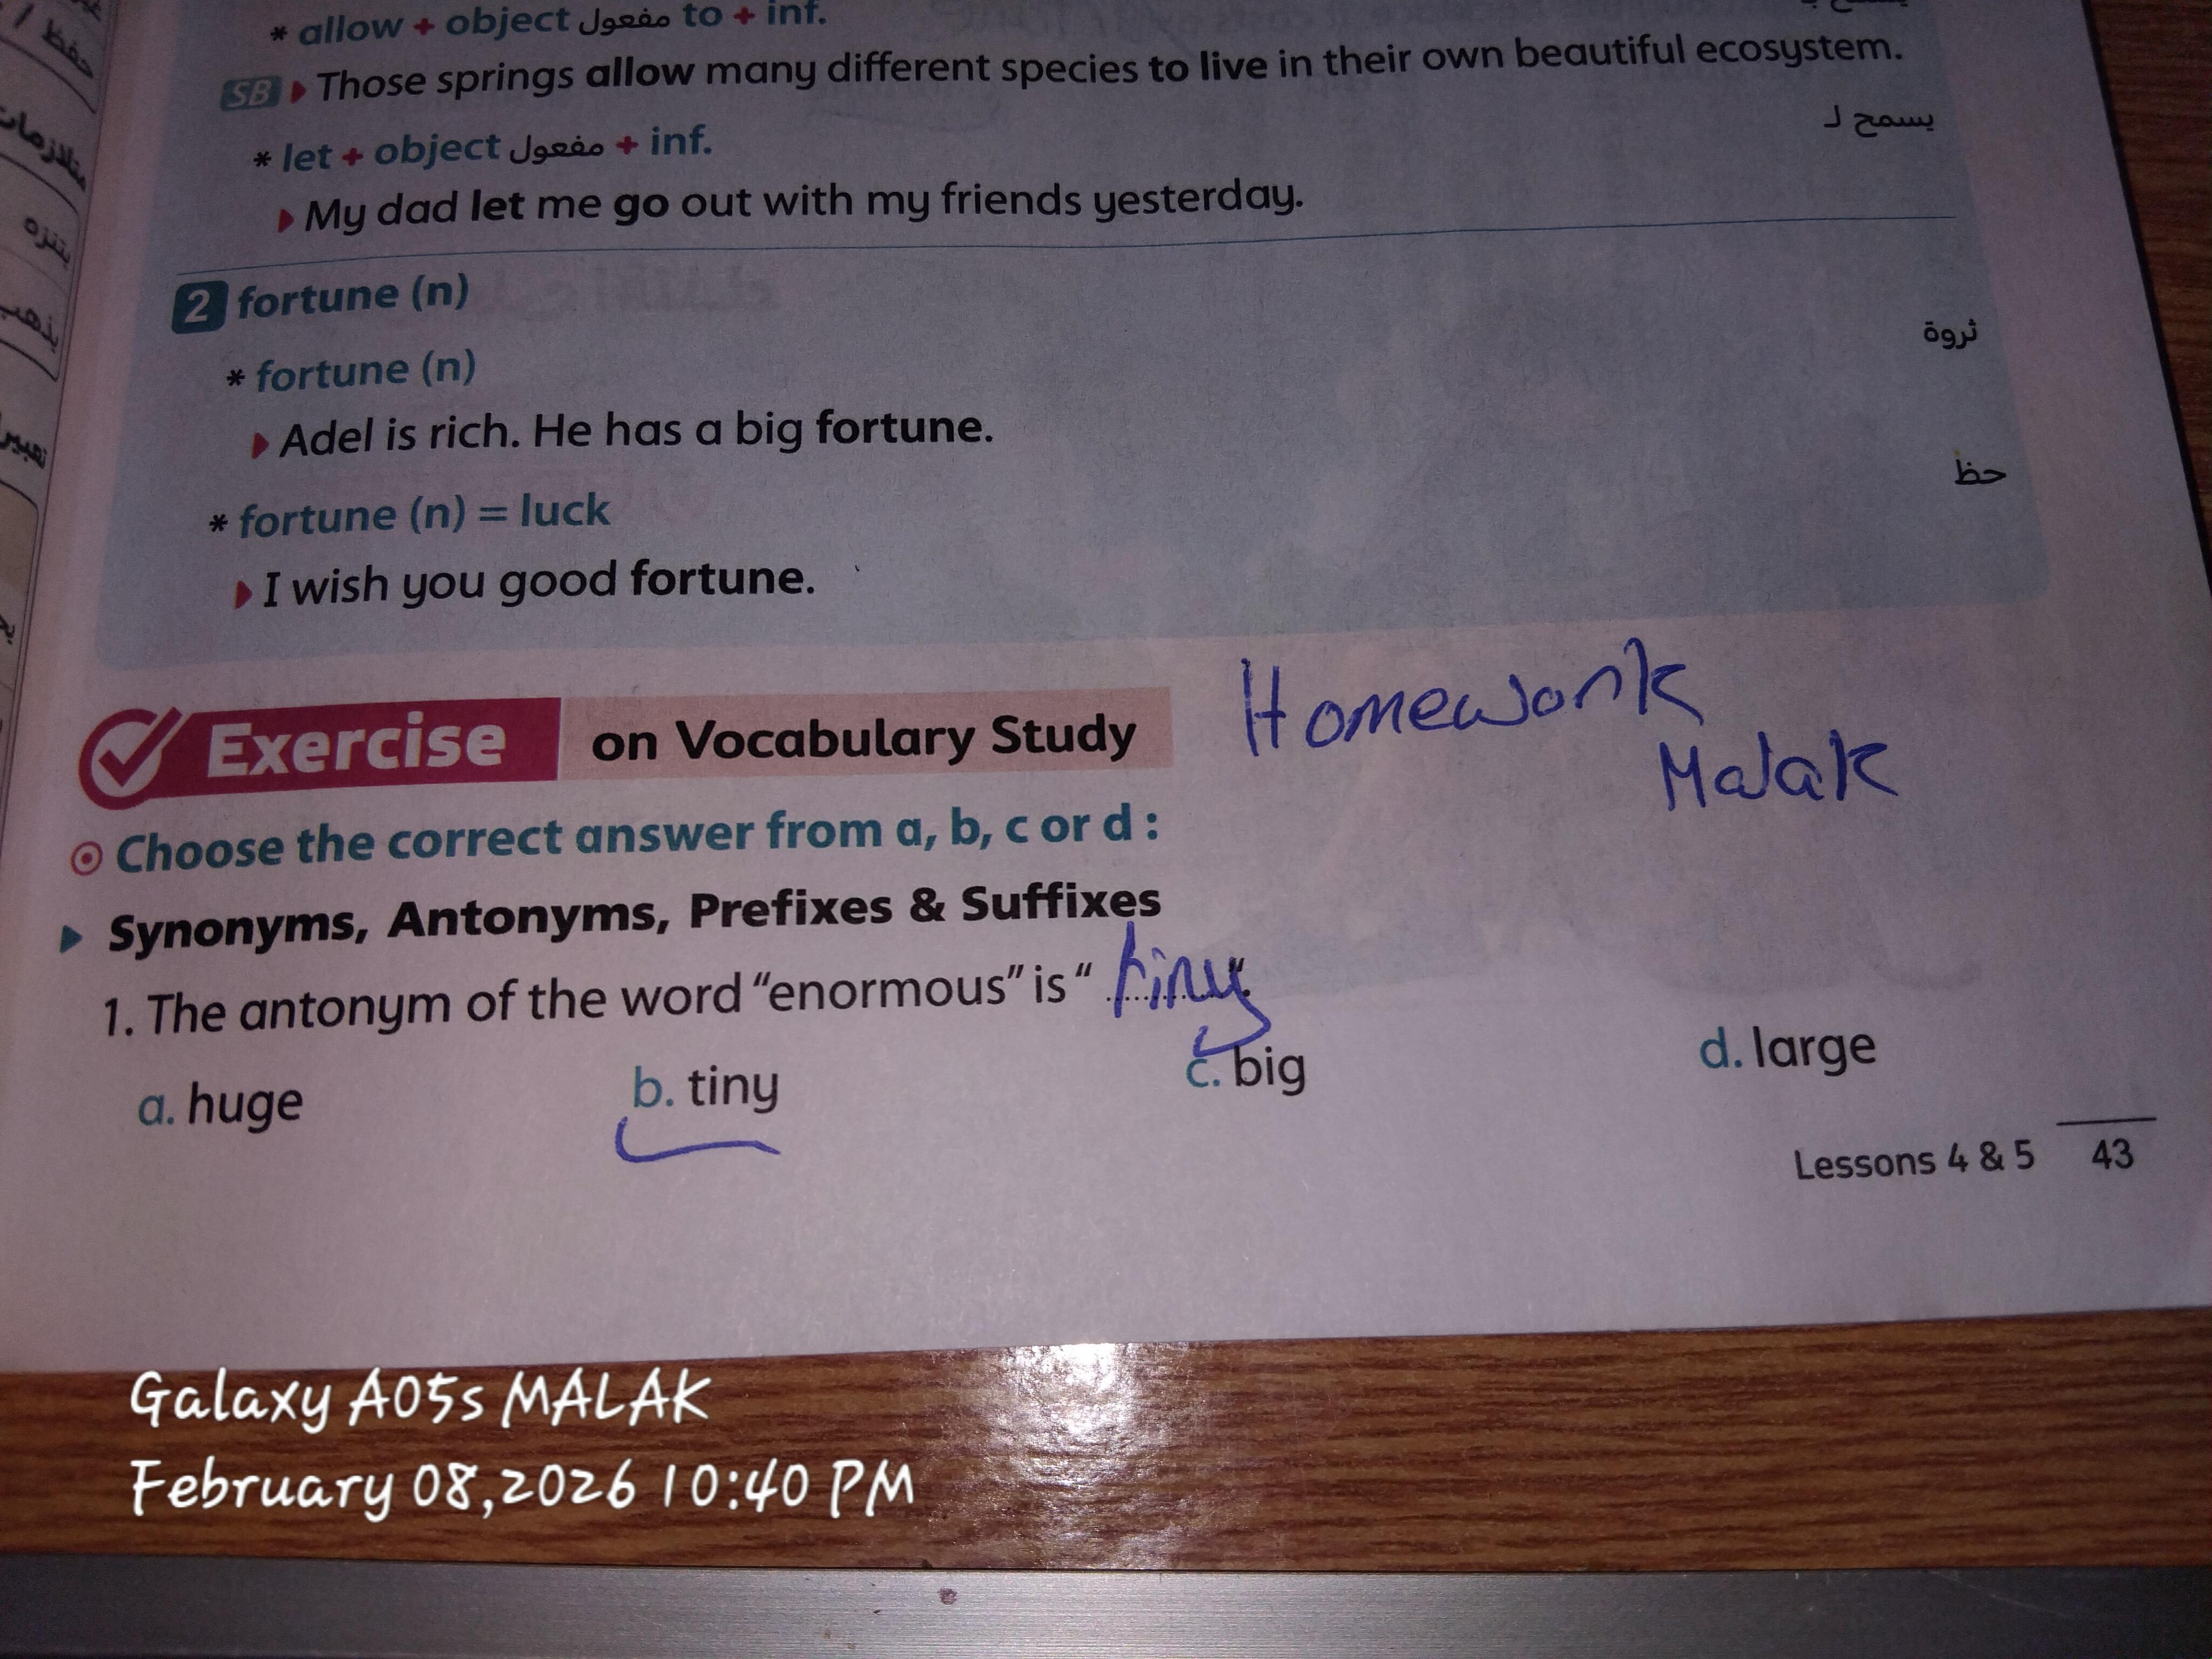 * allow + object مفعول to + inf.
SB Those springs allow many different species to live in their own beautiful ecosystem.
يسمح لـ
* let + object مفعول + inf.
My dad let me go out with my friends yesterday.
2 fortune (n)
* fortune (n) ثروة
Adel is rich. He has a big fortune.
* fortune (n) = luck حظ
I wish you good fortune.
Homework
Malak
Exercise on Vocabulary Study
Choose the correct answer from a, b, c or d :
Synonyms, Antonyms, Prefixes & Suffixes
1. The antonym of the word “enormous” is “ tiny ”.
a. huge b. tiny c. big d. large
Lessons 4 & 5 43
Galaxy A05s MALAK
February 08,2026 10:40 PM